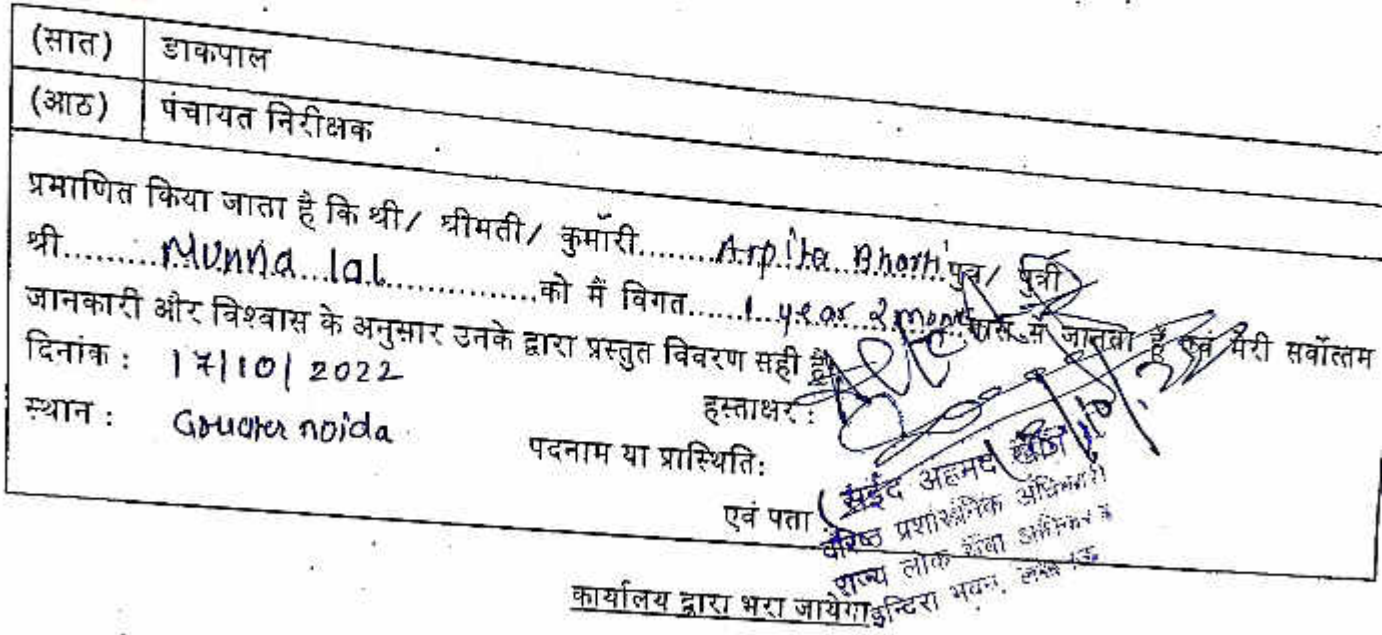 (सात) डाकपाल
(आठ) पंचायत निरीक्षक
प्रमाणित किया जाता है कि श्री/ श्रीमती/ कुमारी........Arpita Bharti पुत्र/ पुत्री
श्री.........Munna lal...............को मैं विगत......1 year 2 month मास से जानता हूँ एवं मेरी सर्वोत्तम
जानकारी और विश्वास के अनुसार उनके द्वारा प्रस्तुत विवरण सही है
दिनांक : 17/10/2022
हस्ताक्षर :
स्थान : Greater noida
पदनाम या प्रास्थिति:
एवं पता :
(सईद अहमद
वरिष्ठ प्रशासनिक अधिकारी
राज्य लोक सेवा अधिकरण
इन्दिरा भवन, लखनऊ
कार्यालय द्वारा भरा जायेगा